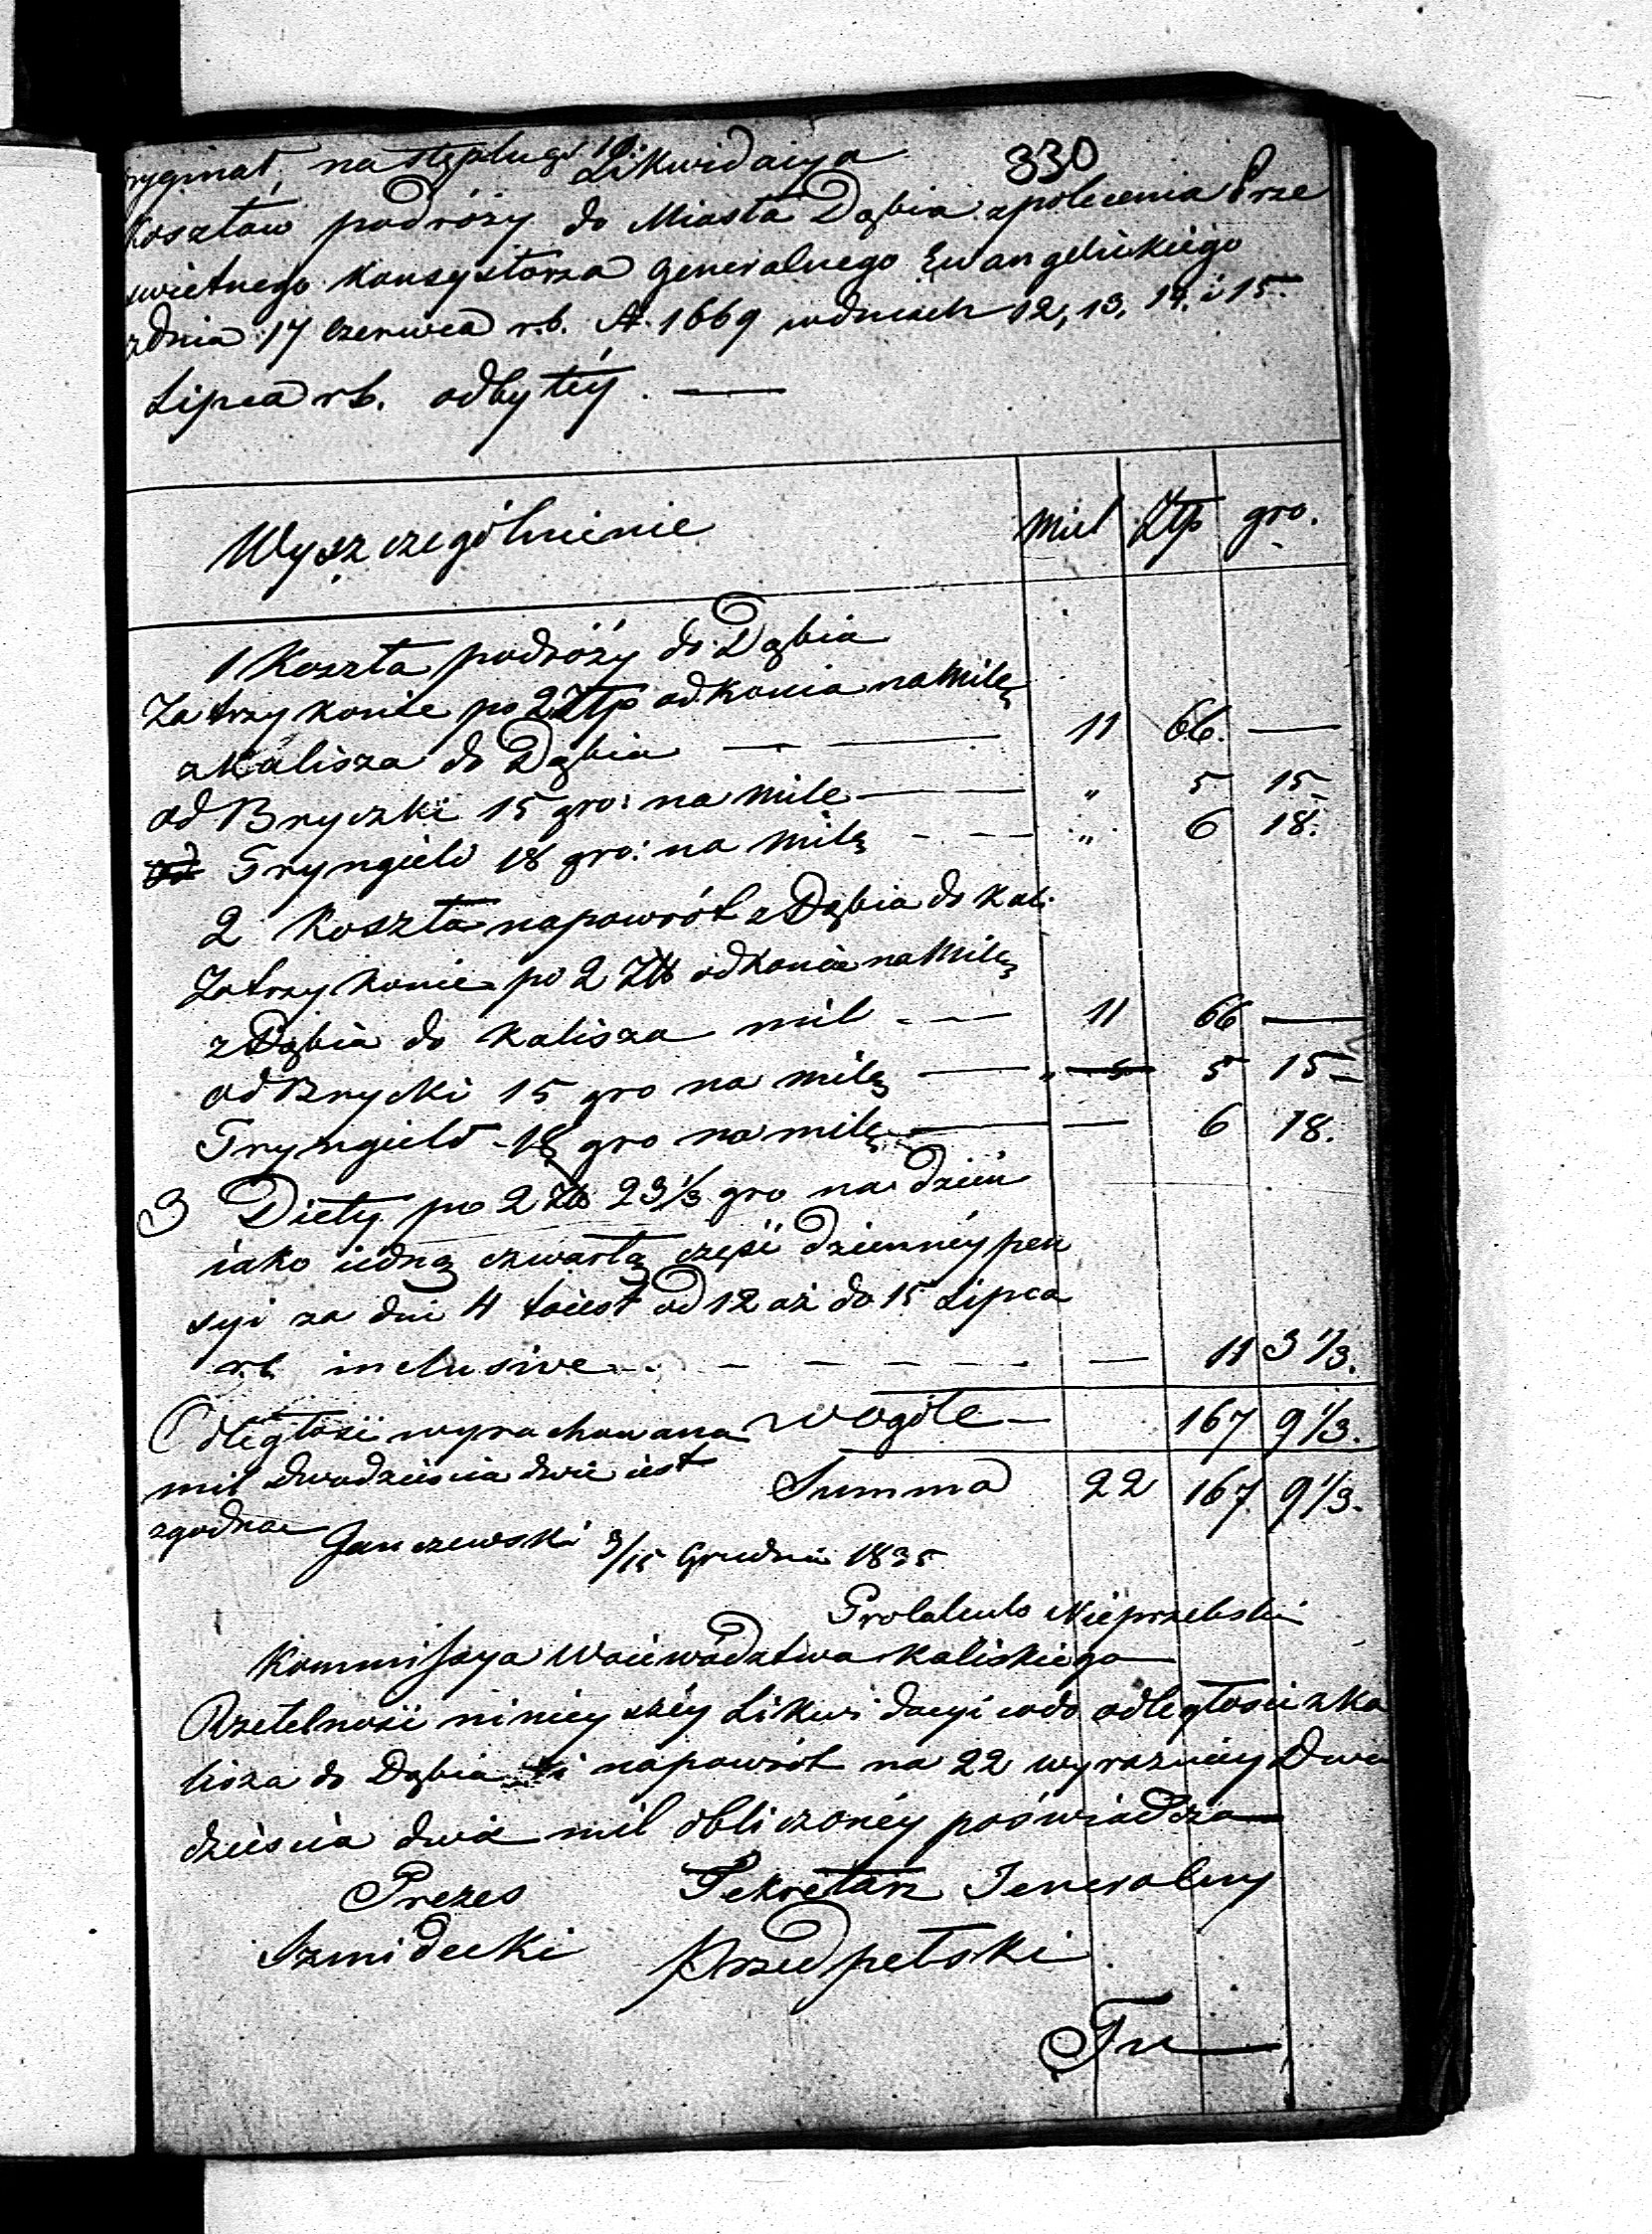 330
Likwidacya
kosztow podróży do Miasta Dąbia z polecenia Prze
świetnego Konsystorza Generalnego Ewangelickiego
zdnia 17 Czerwca r.b. N. 1669 wdniach 12, 13, 14. i 15.
Lipca rb. odbytéy. —
Wyszczególnienie Mil Ztp gro.
1 Koszta podróży do Dąbia
Za trzy konie po 2 Ztp od konia na Milę
z Kalisza do Dąbia — — 11 66. —
od Bryczki 15 gro: na mile — — „ 5 15
Tryngield 18 gro: na milę - - - „ 6 18.
2 Koszta napowrót z Dąbia do Kal:
Za trzy konie po 2 Zł od konia na Milę
z Dąbia do Kalisza mil - - - 11 66 —
od Brycki 15 gro na milę — „ 5 15
Tryngield - 18 gro na milę — — 6 18.
3 Diety po 2 Zł 23 1/3 gro na dzień
iako iedną czwartą część dziennéy pen
syi za dni 4 toiest od 12 aż do 15 Lipca
r.b. inclusive - - - - - — 11 3 1/3.
Odległość wyrachowana wogóle — 167 9 1/3.
mil dwadzieścia dwie iest Summa 22 167. 9 1/3.
zgodna Janczewski 3/15 Grudnia 1835
Kommissya Woiewództwa Kaliskiego
Rzetelność ninieyszéy Likwidacyi codo odległości z Ka
lisza do Dąbia i napowrót na 22 wyrazniey Dwa
dzieścia dwie mil obliczonéy poświadcza
Prezes Sekretarz Jeneralny
Szmidecki Przedpełski